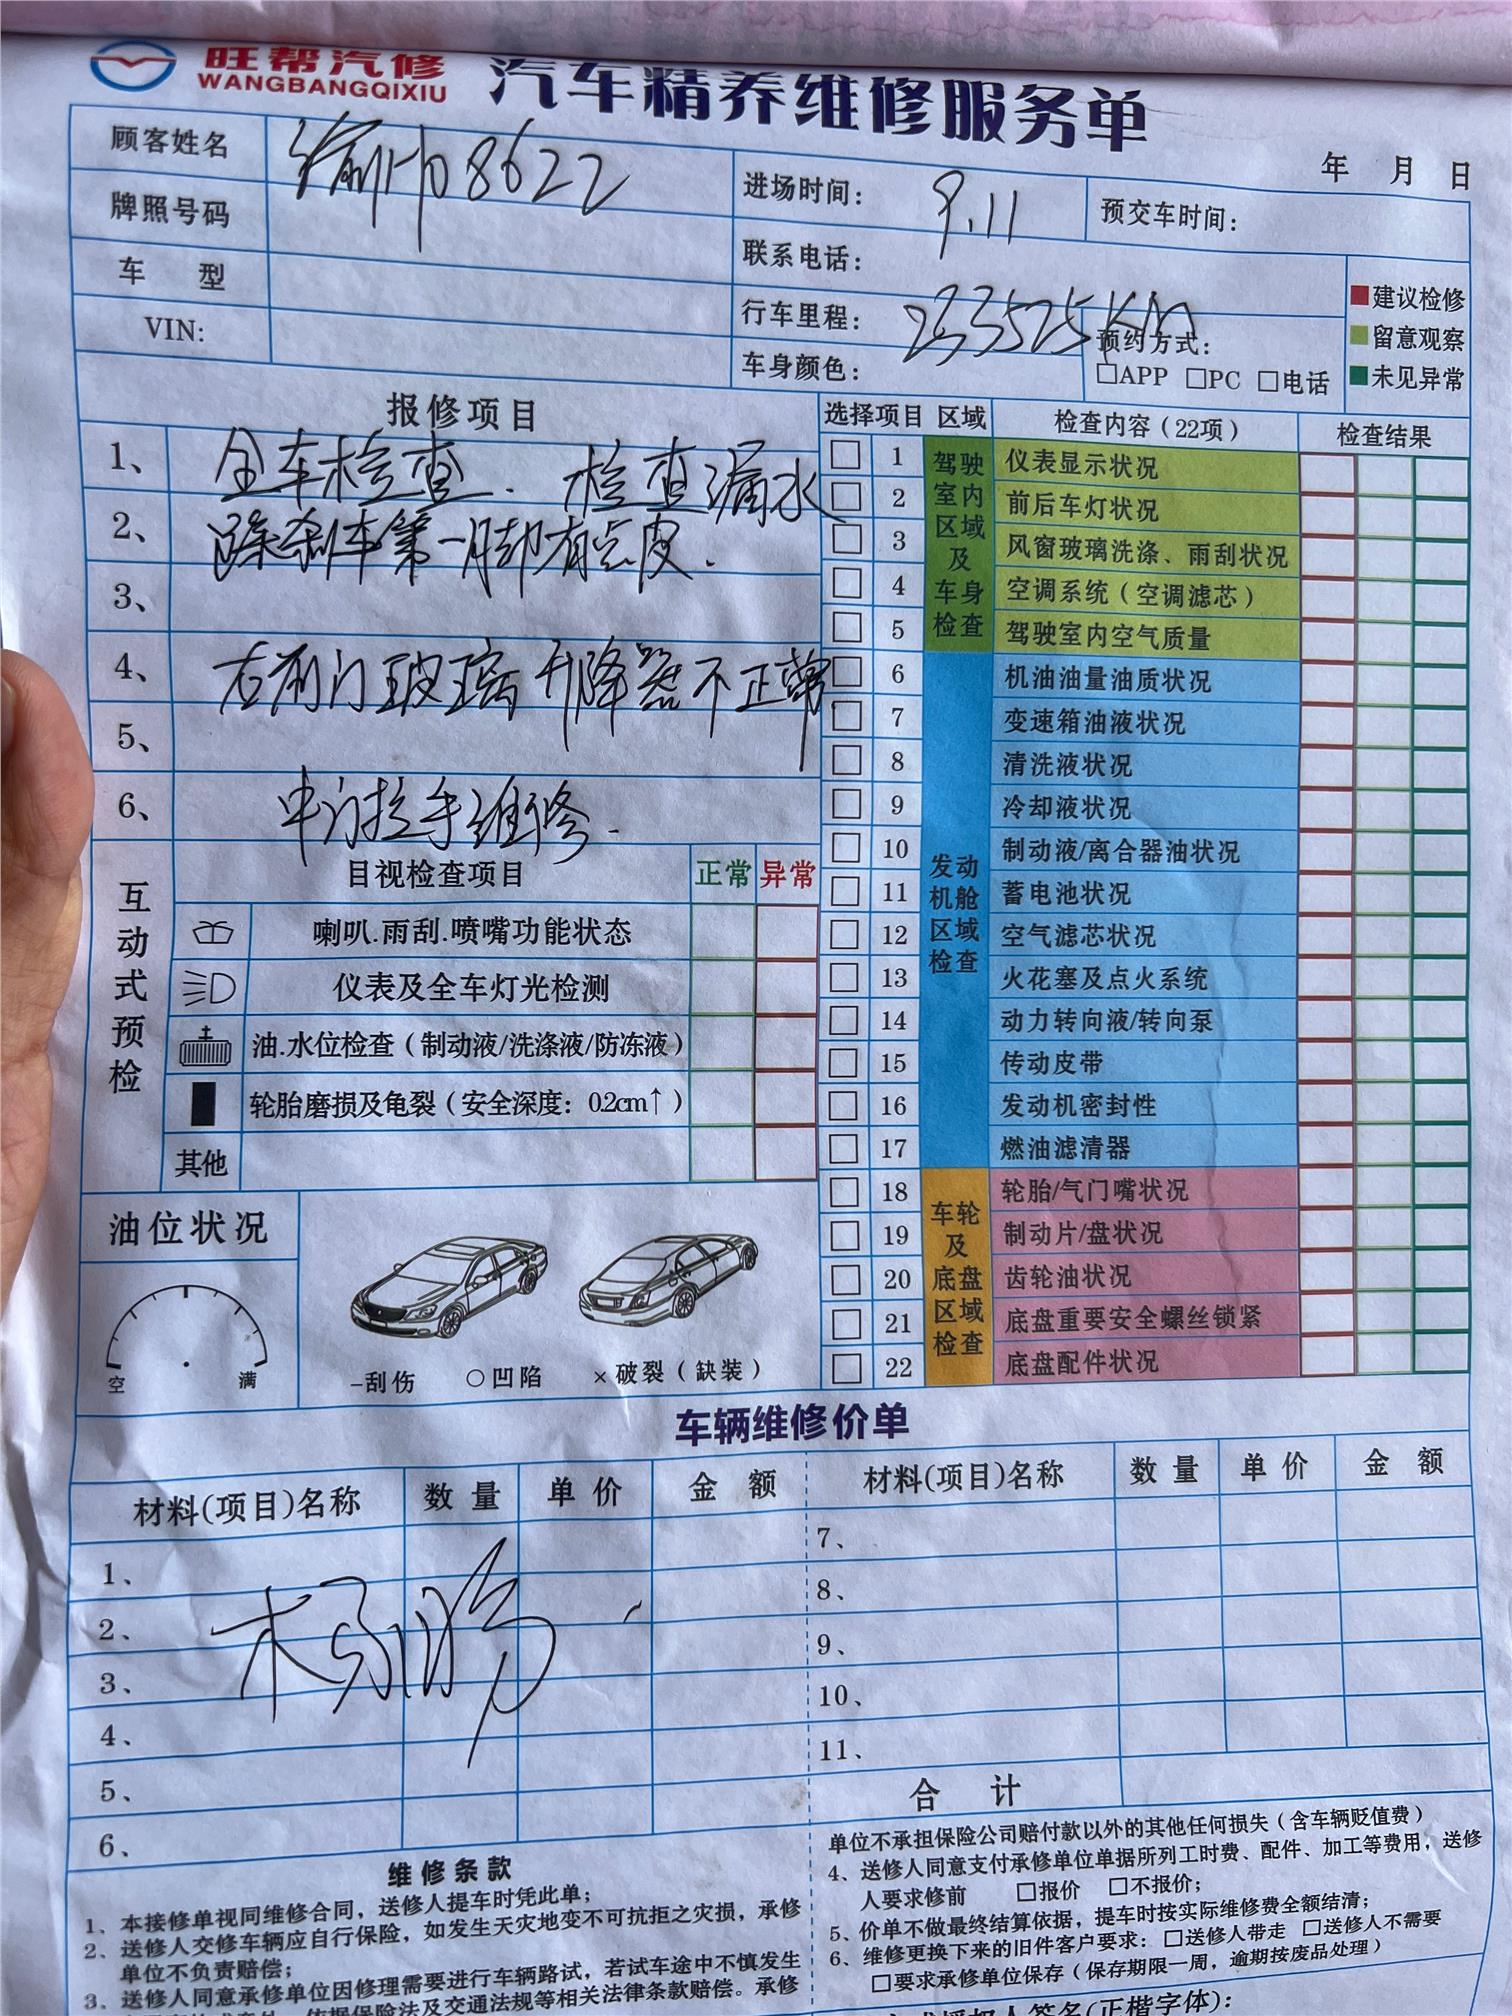 旺帮汽修
WANGBANGQIXIU
汽车精养维修服务单
年 月 日
顾客姓名
牌照号码
8622
车 型
VIN:
进场时间: 9.11
预交车时间:
联系电话:
行车里程: 233525KM
车身颜色:
预约方式:
□APP □PC □电话
建议检修
留意观察
未见异常
报修项目
1、 全车检查. 检查漏水
2、 除刹车第一脚有点皮.
3、
4、 右前门玻璃升降器不正常
5、
6、 中门拉手维修.
互动式预检
目视检查项目 正常 异常
喇叭.雨刮.喷嘴功能状态
仪表及全车灯光检测
油.水位检查(制动液/洗涤液/防冻液)
轮胎磨损及龟裂(安全深度: 0.2cm↑)
其他
油位状况
空 满
−刮伤 ○凹陷 ×破裂(缺装)
选择项目 区域 检查内容(22项) 检查结果
驾驶室内区域及车身检查
1 仪表显示状况
2 前后车灯状况
3 风窗玻璃洗涤、雨刮状况
4 空调系统(空调滤芯)
5 驾驶室内空气质量
发动机舱区域检查
6 机油油量油质状况
7 变速箱油液状况
8 清洗液状况
9 冷却液状况
10 制动液/离合器油状况
11 蓄电池状况
12 空气滤芯状况
13 火花塞及点火系统
14 动力转向液/转向泵
15 传动皮带
16 发动机密封性
17 燃油滤清器
车轮及底盘区域检查
18 轮胎/气门嘴状况
19 制动片/盘状况
20 齿轮油状况
21 底盘重要安全螺丝锁紧
22 底盘配件状况
车辆维修价单
材料(项目)名称 数量 单价 金额 材料(项目)名称 数量 单价 金额
1、
2、
3、
4、
5、
6、
7、
8、
9、
10、
11、
合 计
维修条款
1、本接修单视同维修合同，送修人提车时凭此单；
2、送修人交修车辆应自行保险，如发生天灾地变不可抗拒之灾损，承修
单位不负责赔偿；
3、送修人同意承修单位因修理需要进行车辆路试，若试车途中不慎发生
依据保险法及交通法规等相关法律条款赔偿。承修
单位不承担保险公司赔付款以外的其他任何损失(含车辆贬值费)
4、送修人同意支付承修单位单据所列工时费、配件、加工等费用，送修
人要求修前 □报价 □不报价；
5、价单不做最终结算依据，提车时按实际维修费全额结清；
6、维修更换下来的旧件客户要求: □送修人带走 □送修人不需要
□要求承修单位保存(保存期限一周，逾期按废品处理)
授权人签名(正楷字体):